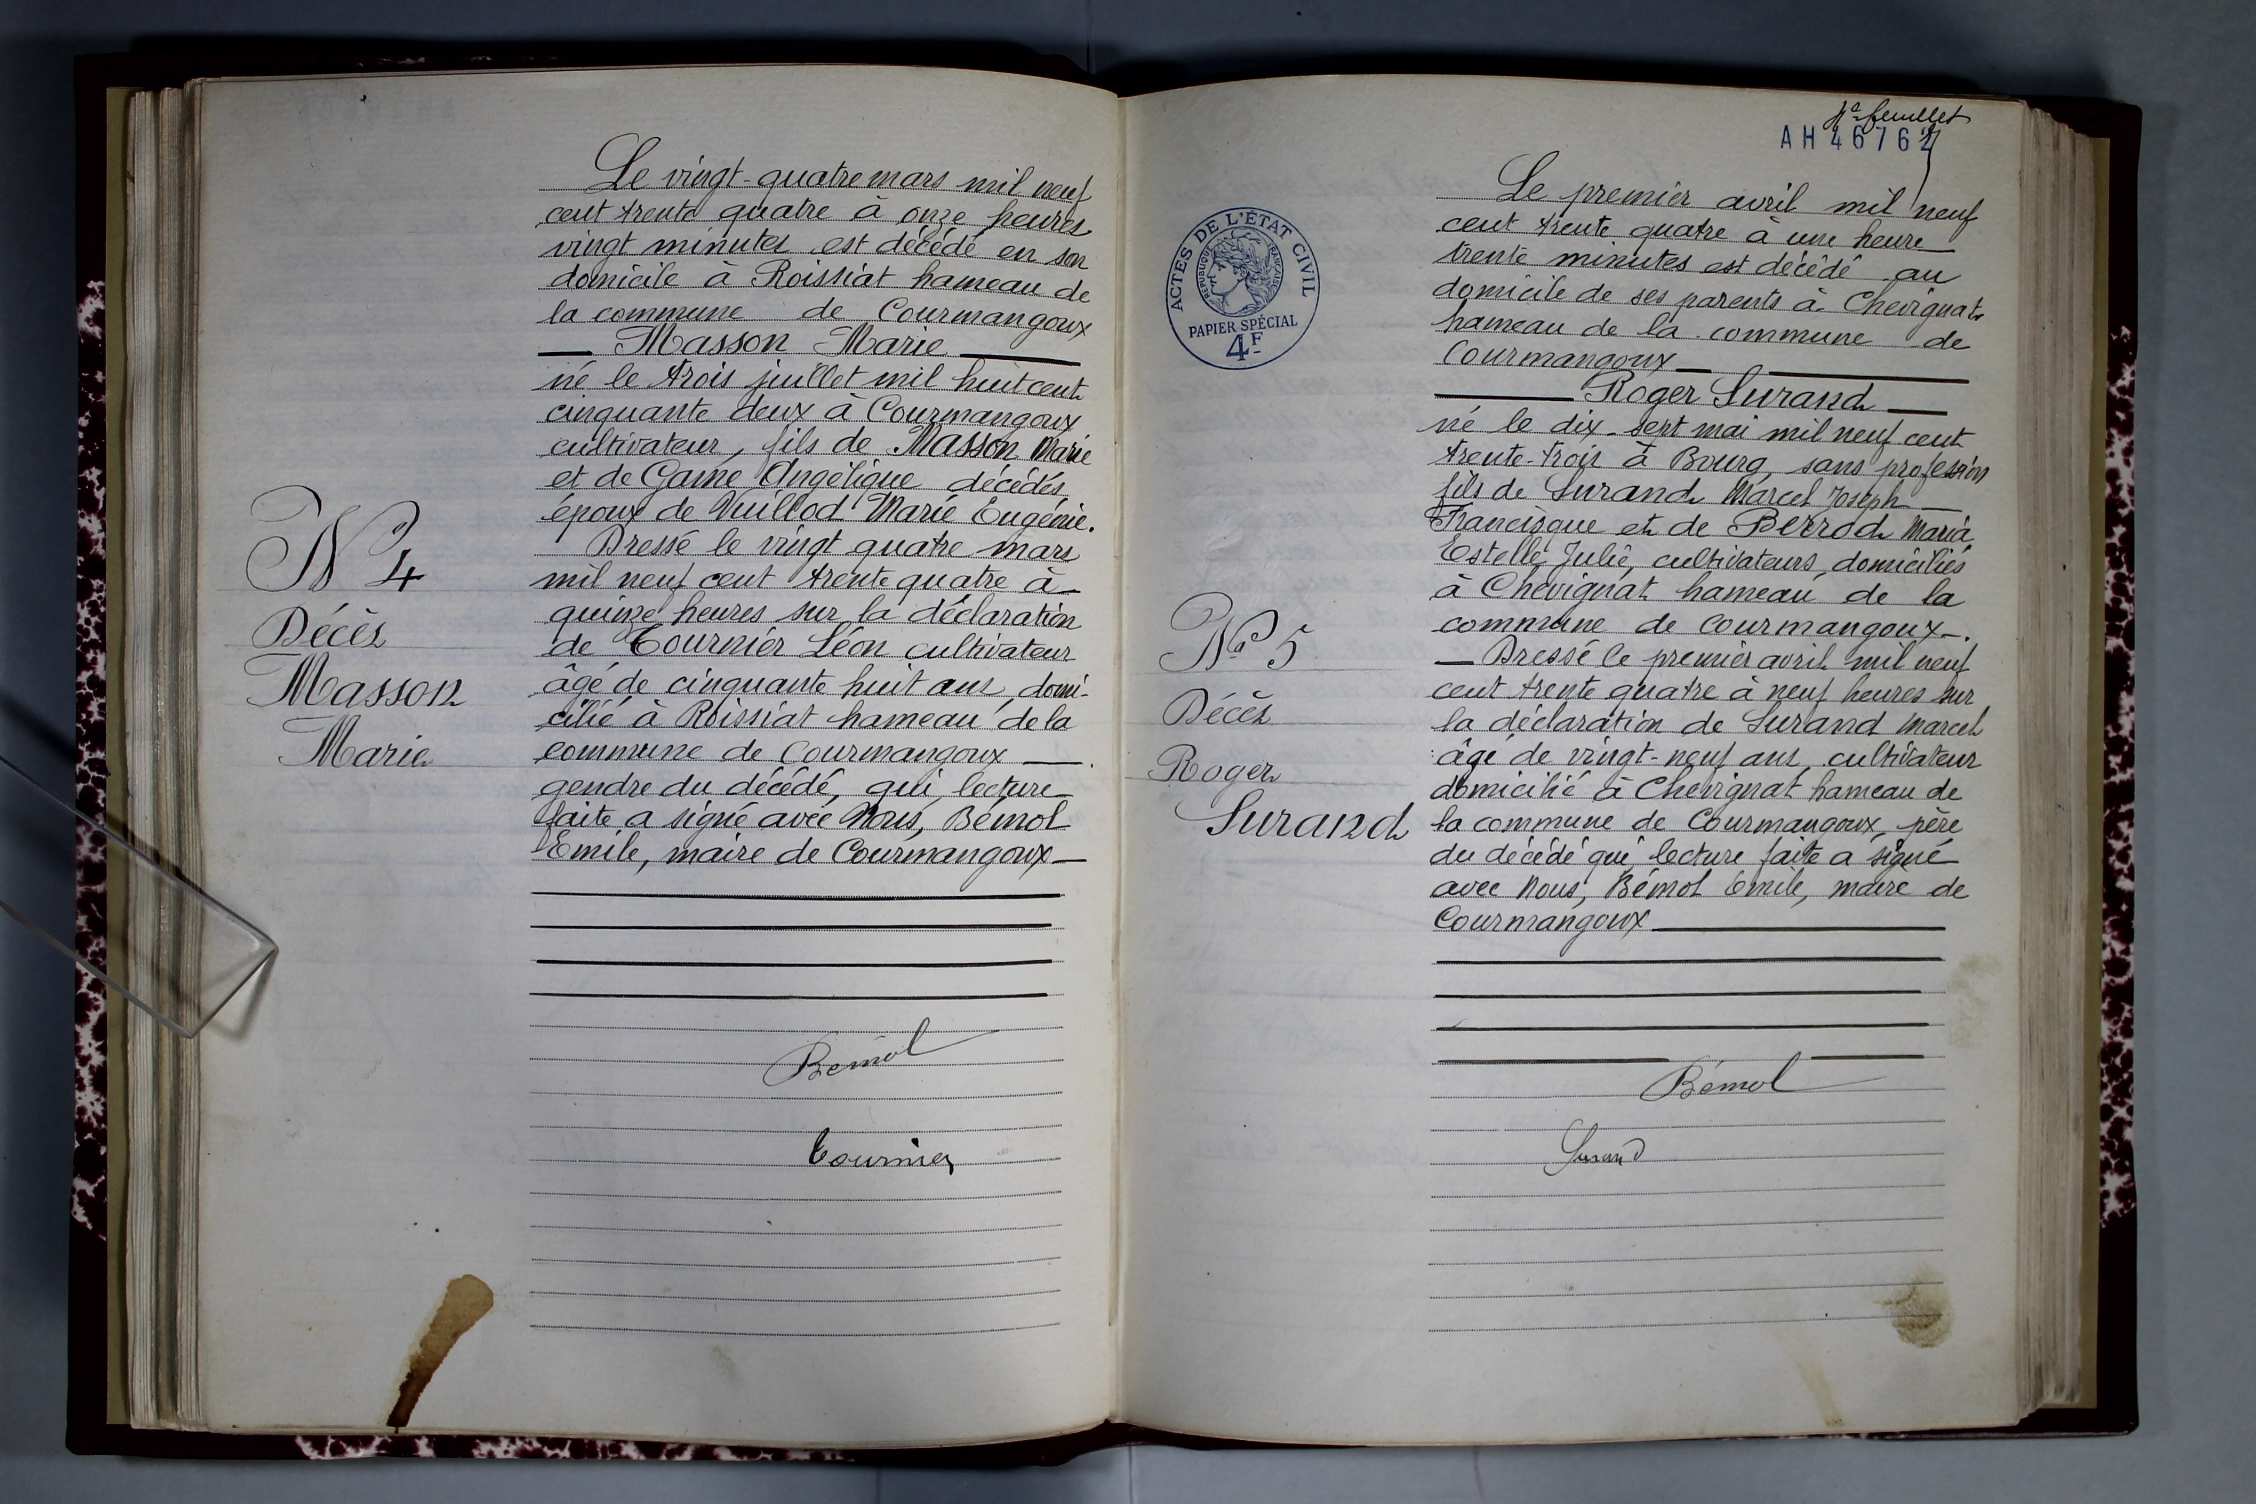 Le vingt-quatre mars mil neuf
cent trente quatre à onze heures
vingt minutes est décédé en son
domicile à Roissiat hameau de
la commune de Courmangoux
Masson Marie
né le trois juillet mil huit cent
cinquante deux à Courmangoux
cultivateur, fils de Masson Marie
et de Game Angélique décédés,
époux de Vuillod Marie Eugénie.
Dressé le vingt quatre mars
mil neuf cent trente quatre à
quinze heures sur la déclaration
de Tournier Léon cultivateur
âgé de cinquante huit ans, domi-
cilié à Roissiat hameau de la
commune de Courmangoux
gendre du décédé, qui, lecture
faite a signé avec Nous, Bémol
Emile, maire de Courmangoux
N° 4
Décès
Masson
Marie
Bémol
Tournier
feuillet
AH 46762
ACTES DE L'ÉTAT CIVIL
RÉPUBLIQUE FRANÇAISE
PAPIER SPÉCIAL
4F
Le premier avril mil neuf
cent trente quatre à une heure
trente minutes est décédé au
domicile de ses parents à Chevignat
hameau de la commune de
Courmangoux
Roger Surand
né le dix-sept mai mil neuf cent
trente-trois à Bourg, sans profession
fils de Surand Marcel Joseph
Francisque et de Berrod Maria
Estelle Julie, cultivateurs, domiciliés
à Chevignat hameau de la
commune de Courmangoux.
Dressé le premier avril mil neuf
cent trente quatre à neuf heures sur
la déclaration de Surand Marcel
âgé de vingt-neuf ans, cultivateur
domicilié à Chevignat hameau de
la commune de Courmangoux, père
du décédé qui lecture faite a signé
avec Nous, Bémol Emile, maire de
Courmangoux
N° 5
Décès
Roger
Surand
Bémol
Surand